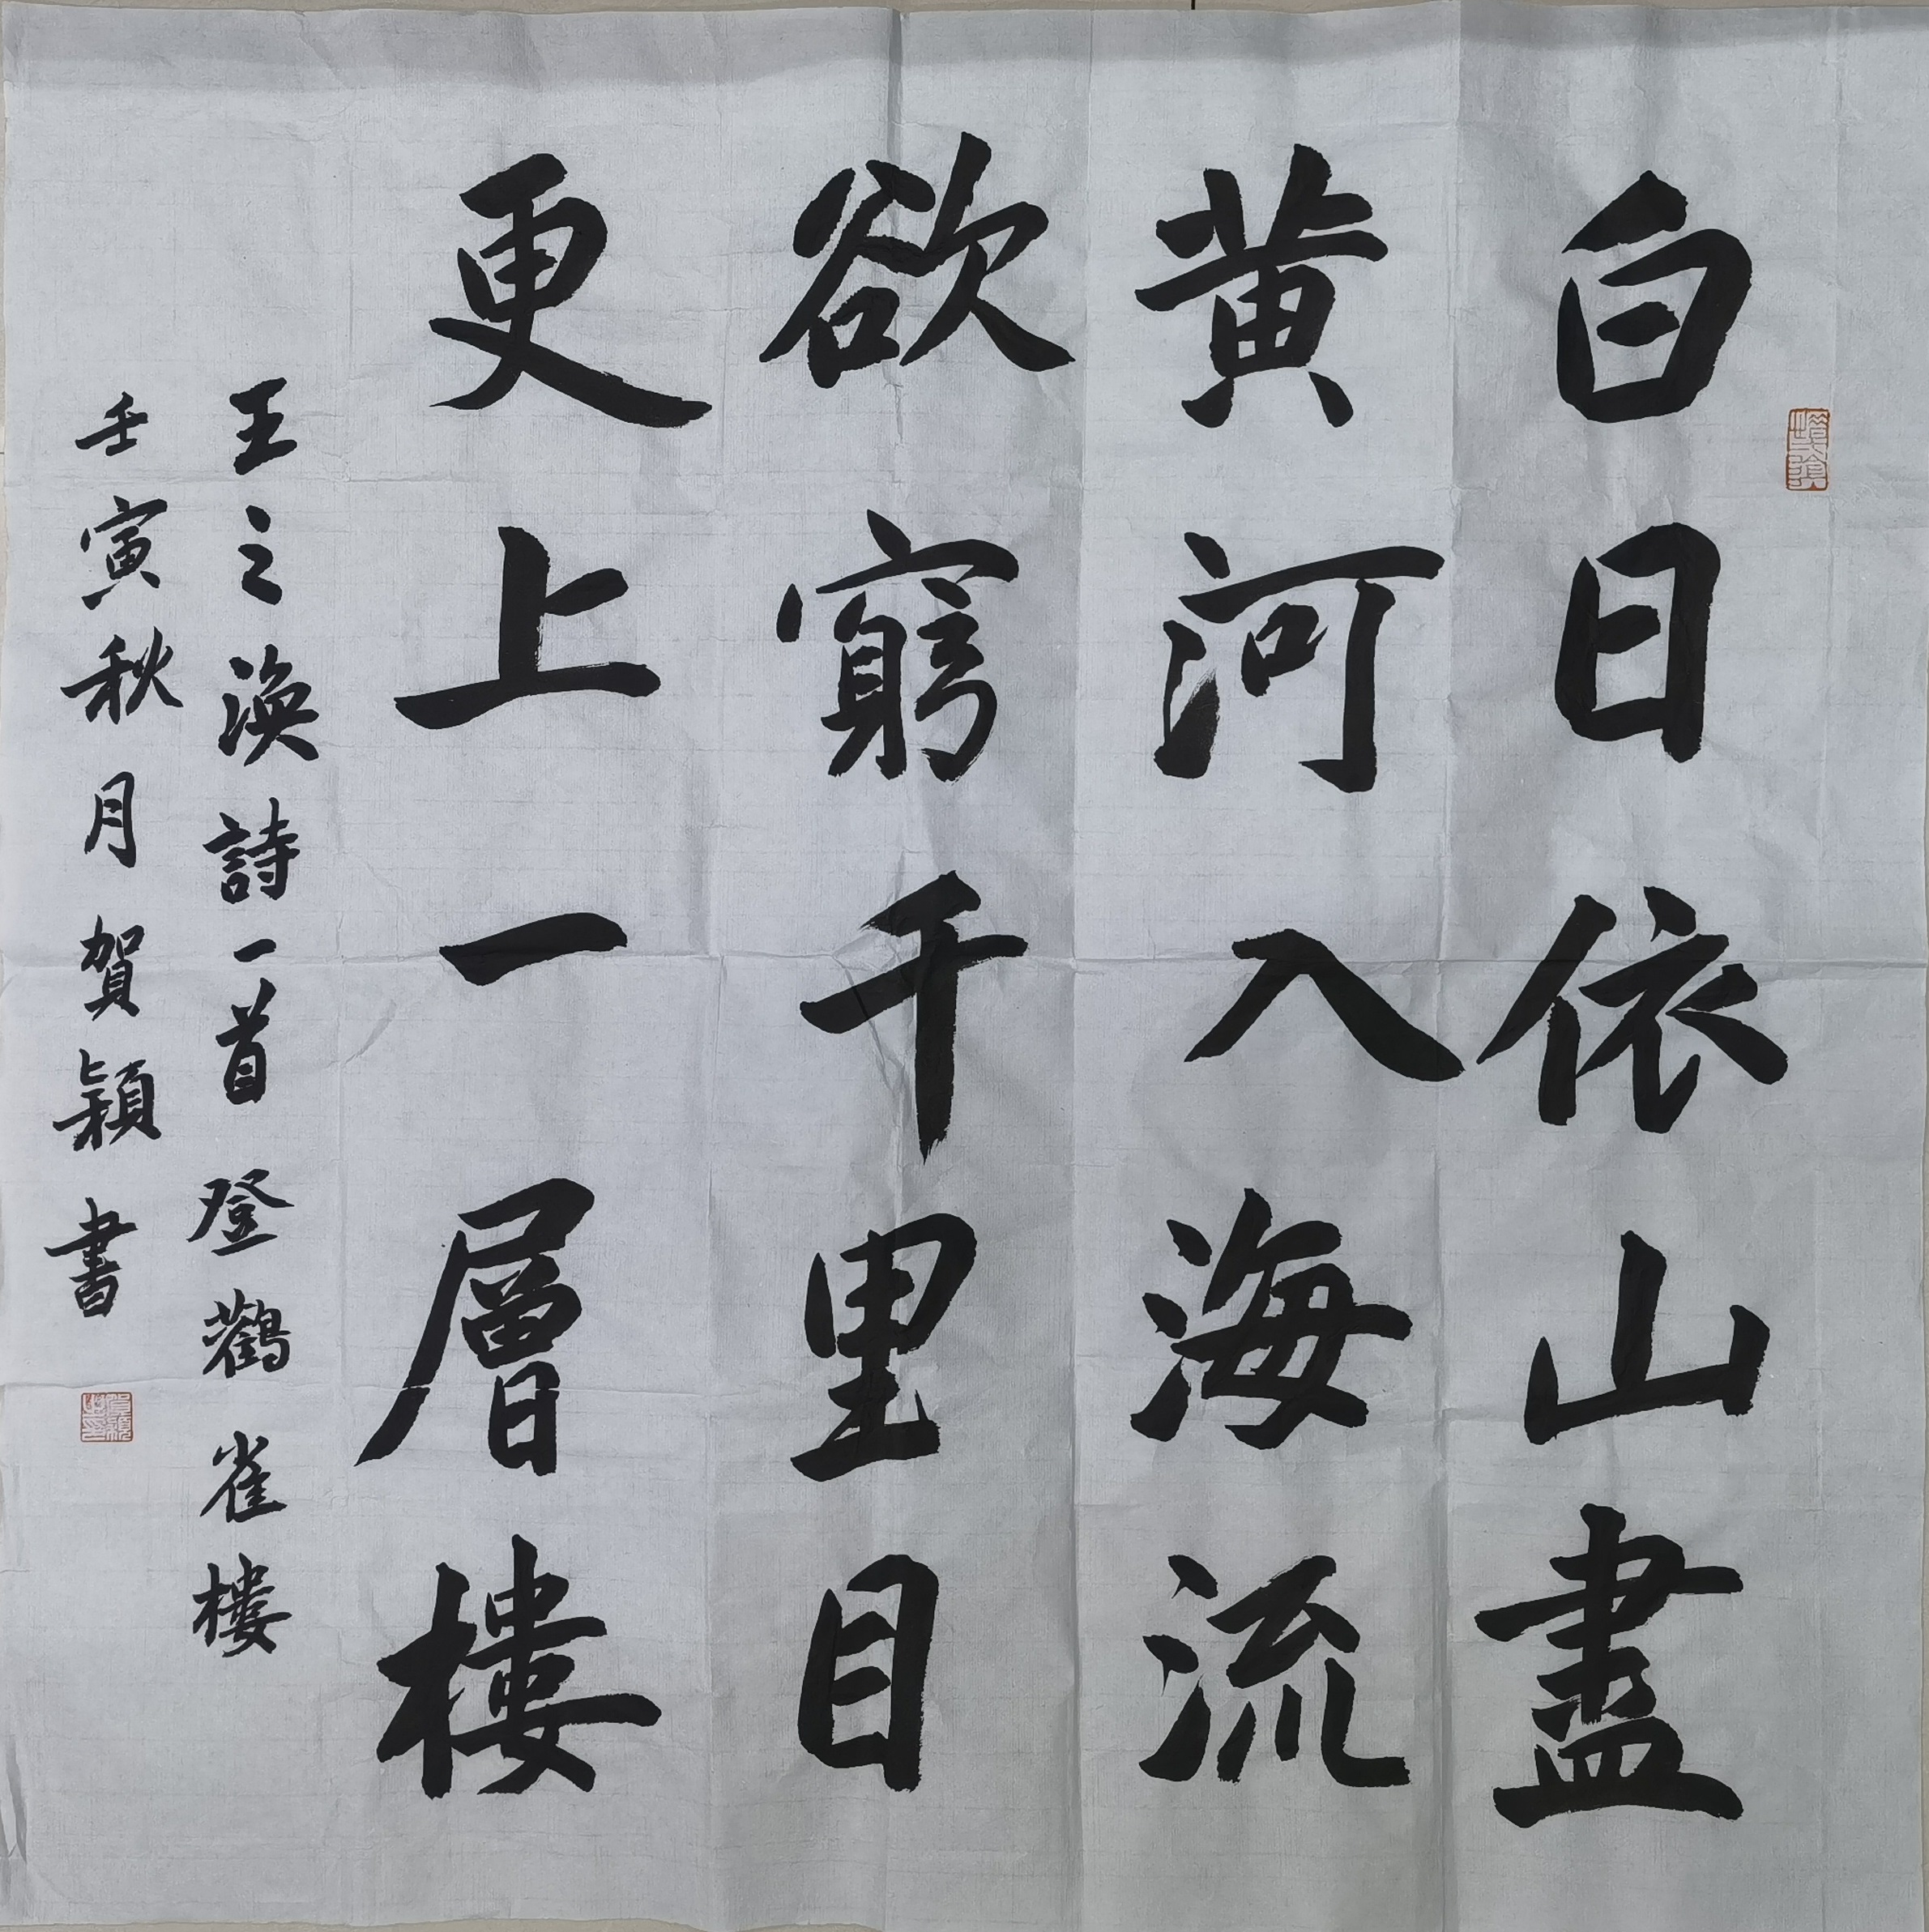 白日依山盡
黄河入海流
欲窮千里目
更上一層樓
王之渙詩一首登鸛雀樓
壬寅秋月賀穎書